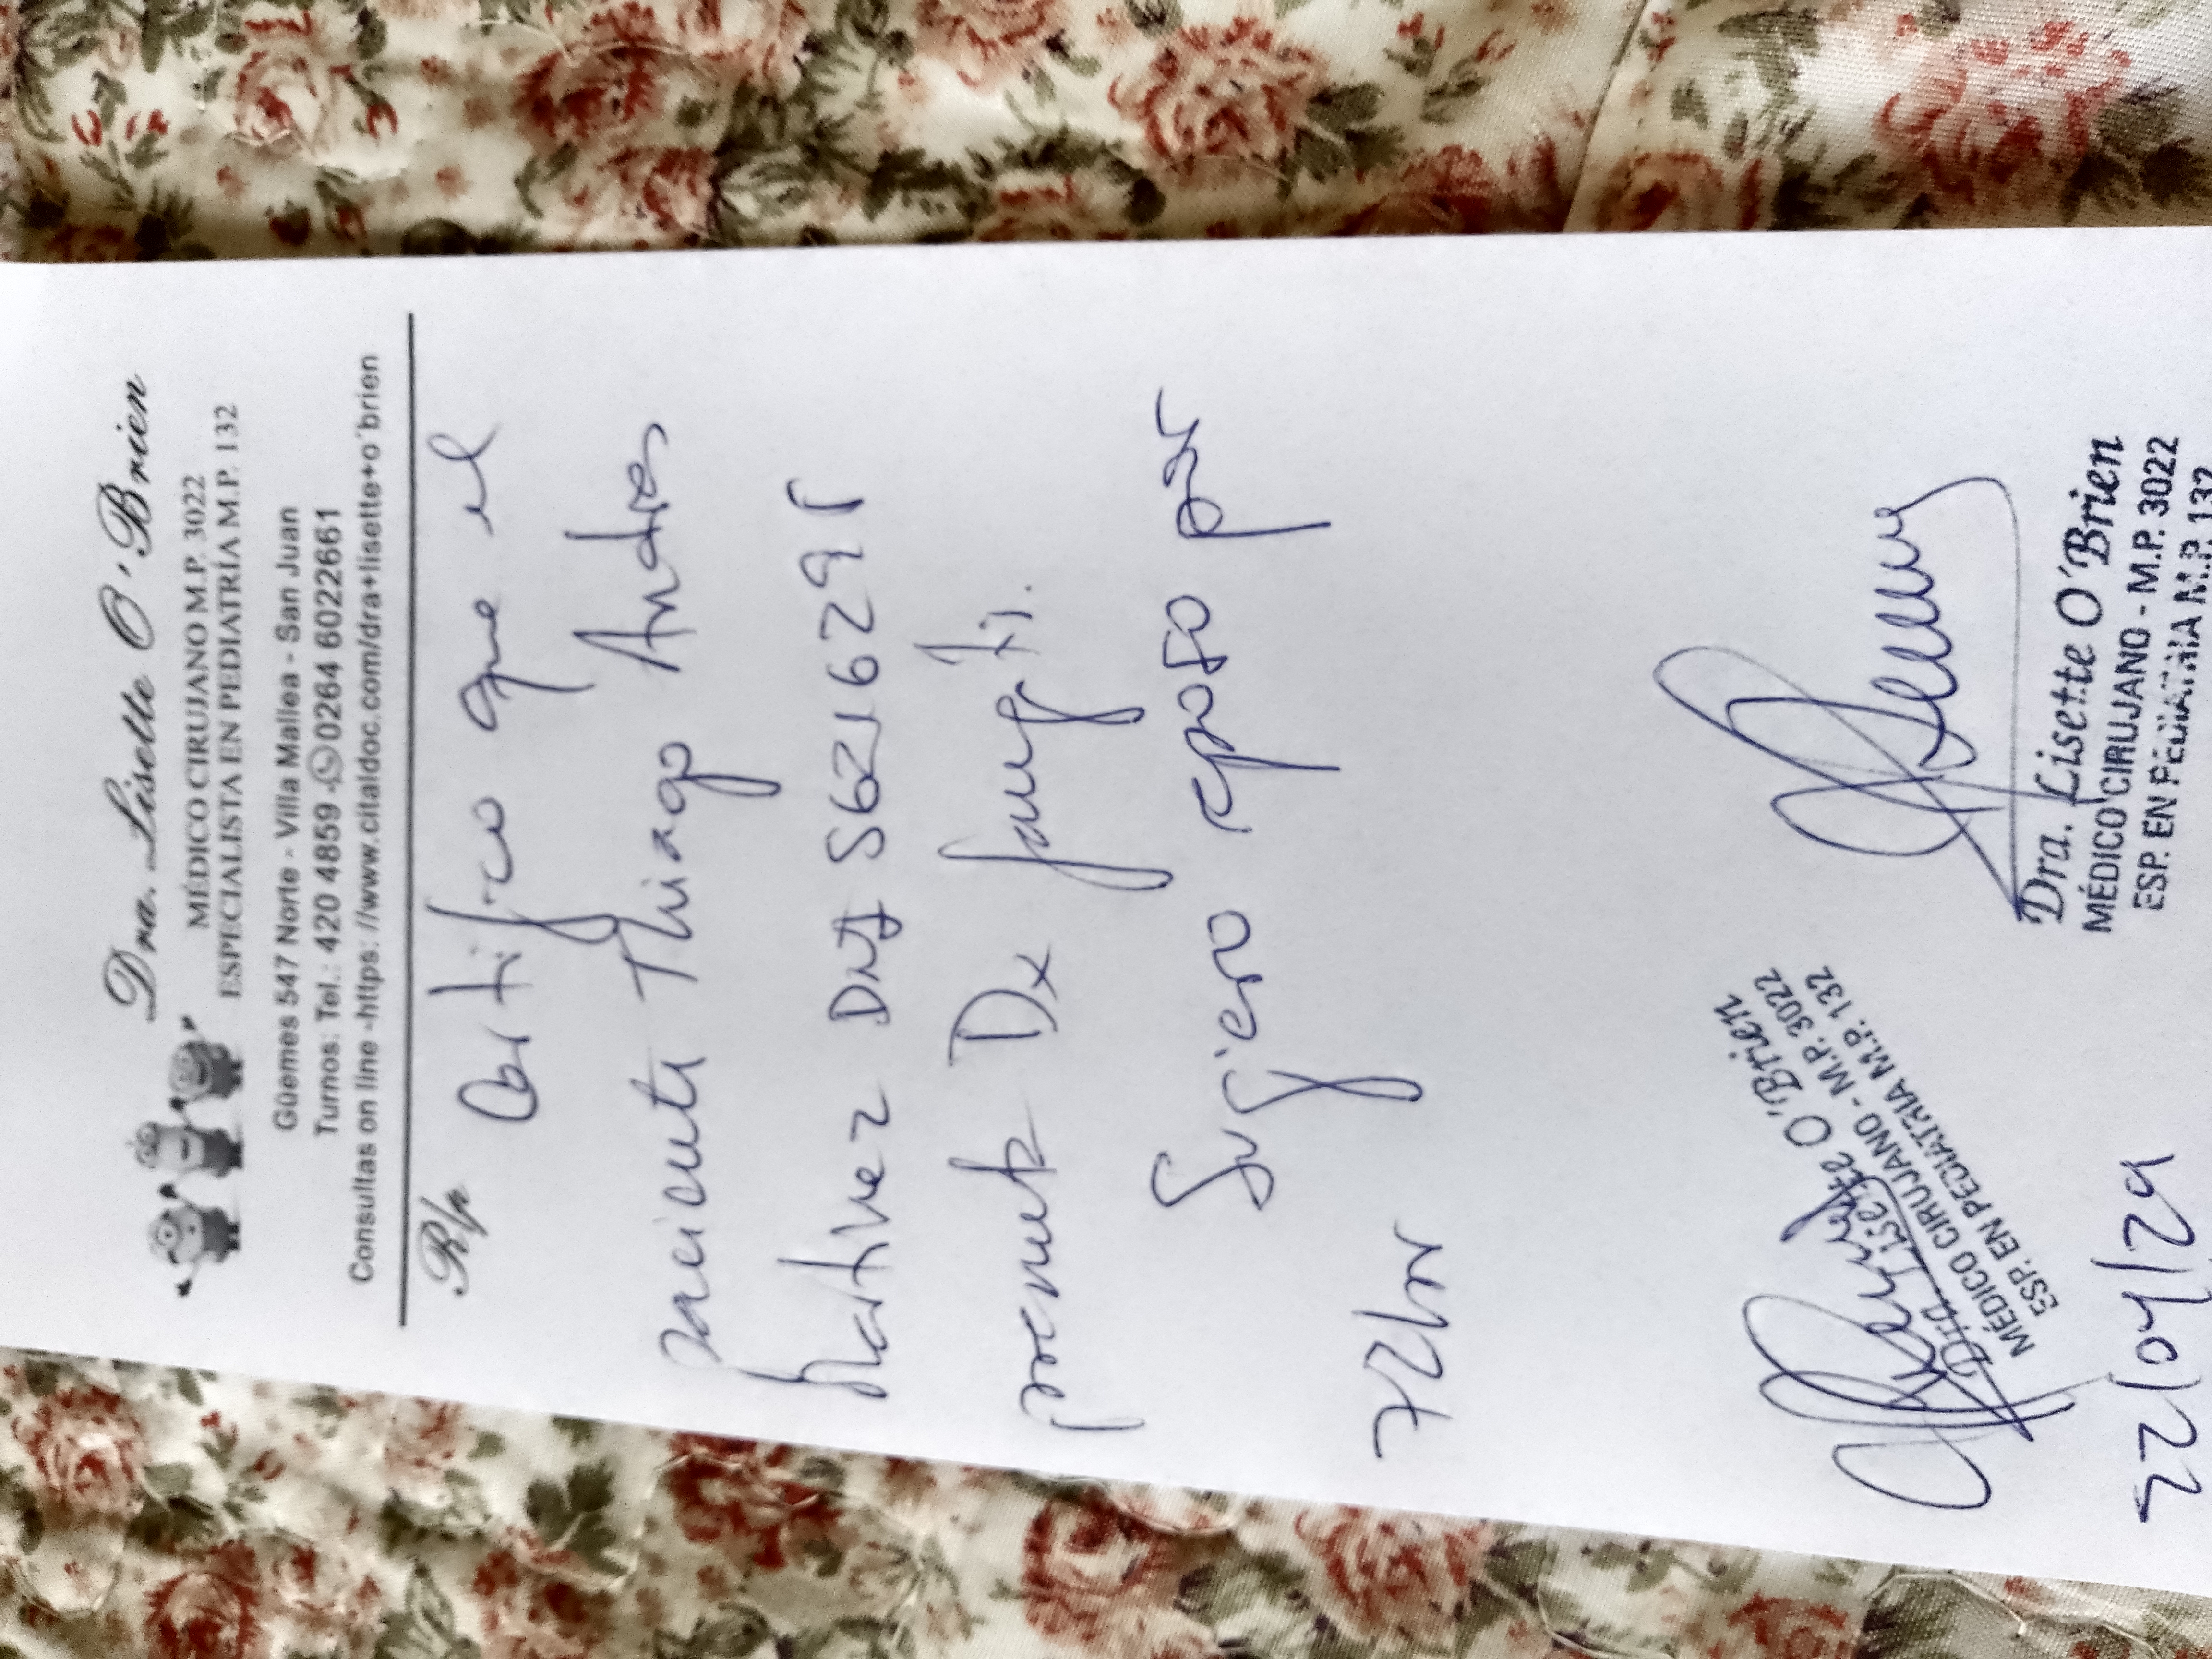 Dra. Lisette O'Brien
MÉDICO CIRUJANO M.P. 3022
ESPECIALISTA EN PEDIATRÍA M.P. 132
Güemes 547 Norte - Villa Mallea - San Juan
Turnos: Tel.: 420 4859 - 0264 6022661
Consultas on line -https: //www.citaldoc.com/dra+lisette+o´brien
R/p
Certifico que el
paciente Thiago Andres
Martinez DNI
presenta Dx faringitis.
Sugiero reposo por
72hs
Dra. Lisette O'Brien
MÉDICO CIRUJANO - M.P. 3022
ESP. EN PEDIATRÍA M.P. 132
Dra. Lisette O'Brien
MÉDICO CIRUJANO - M.P. 3022
ESP. EN PEDIATRÍA M.P. 132
22/04/24